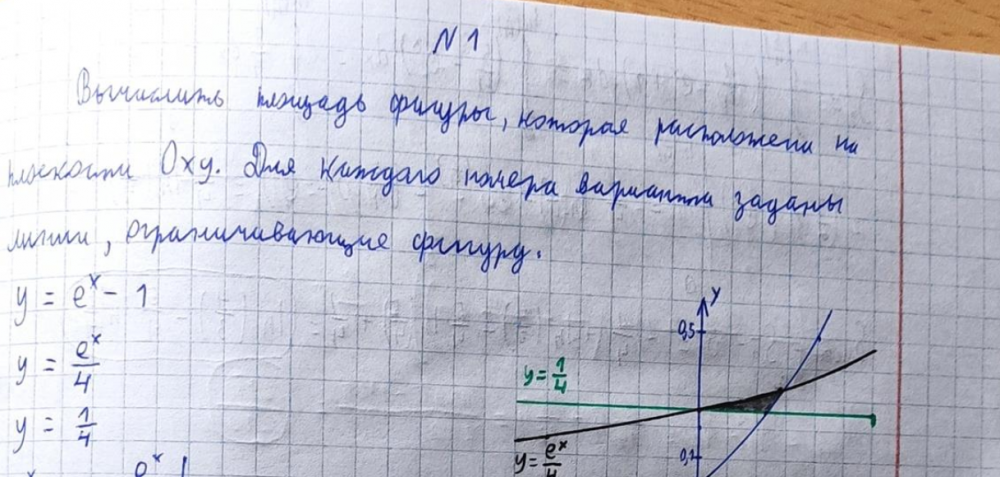 N 1
Вычислить площадь фигуры, которая расположена на
плоскости Oxy. Для каждого номера варианта заданы
линии, ограничивающие фигуру.
y = e^x - 1
y = e^x/4
y = 1/4
0,5
y
y = 1/4
0,1
y = e^x/4